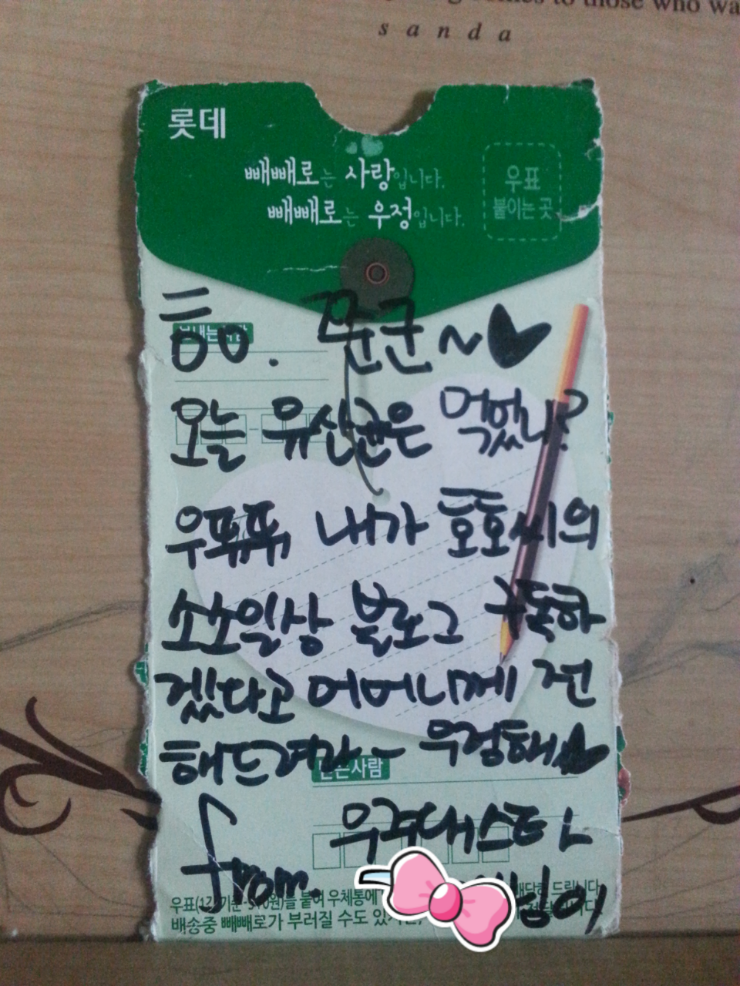 to those who wa
sanda
롯데
빼빼로는 사랑입니다.
빼빼로는 우정입니다.
우표
붙이는 곳
to. 쭌군~♥
오늘 유산균은 먹었니?
우퓨퓨 내가 호호씨의
소소일상 블로그 구독하
겠다고 어머니께 전
해드려라~ 우정해♥
받는사람
from. 우리대스타
우표(1 기준 을 붙여 우체통에
배송중 빼빼로가 부러질 수도 있